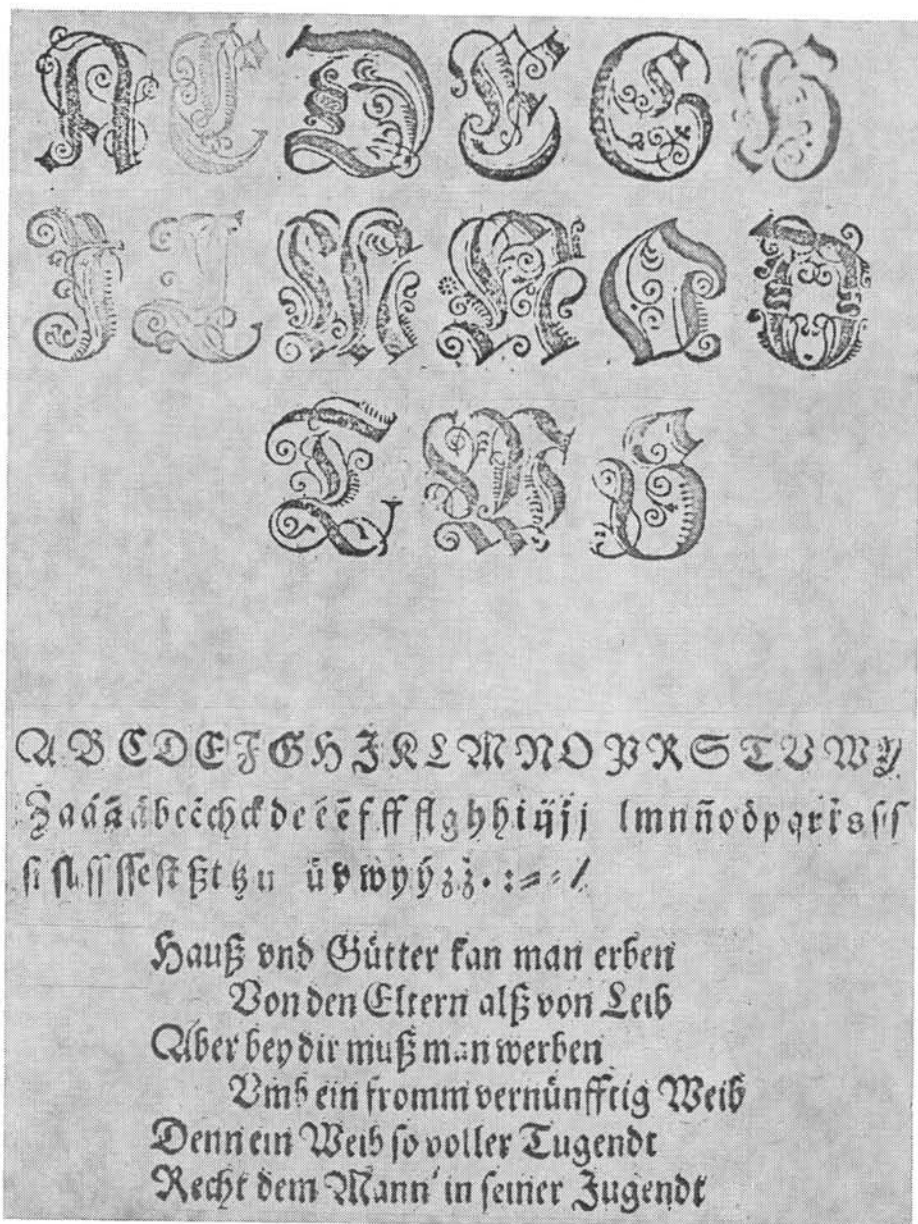 A D E G
A B C D E F G H I K L M N O P R S T V W Y
Z a á ã b c ch ck d e é ẽ f ff fl g h i j l m n ñ o ö p q r s ſ ſ
ſi ſl ſſ ſt ß t tz u ü v w y ÿ z . : = /
Hauß vnd Gütter kan man erben
Von den Eltern alß von Leib
Aber bey dir muß man werben
Vmb ein fromm vernünfftig Weib
Denn ein Weib ſo voller Tugendt
Recht dem Mann' in ſeiner Jugendt